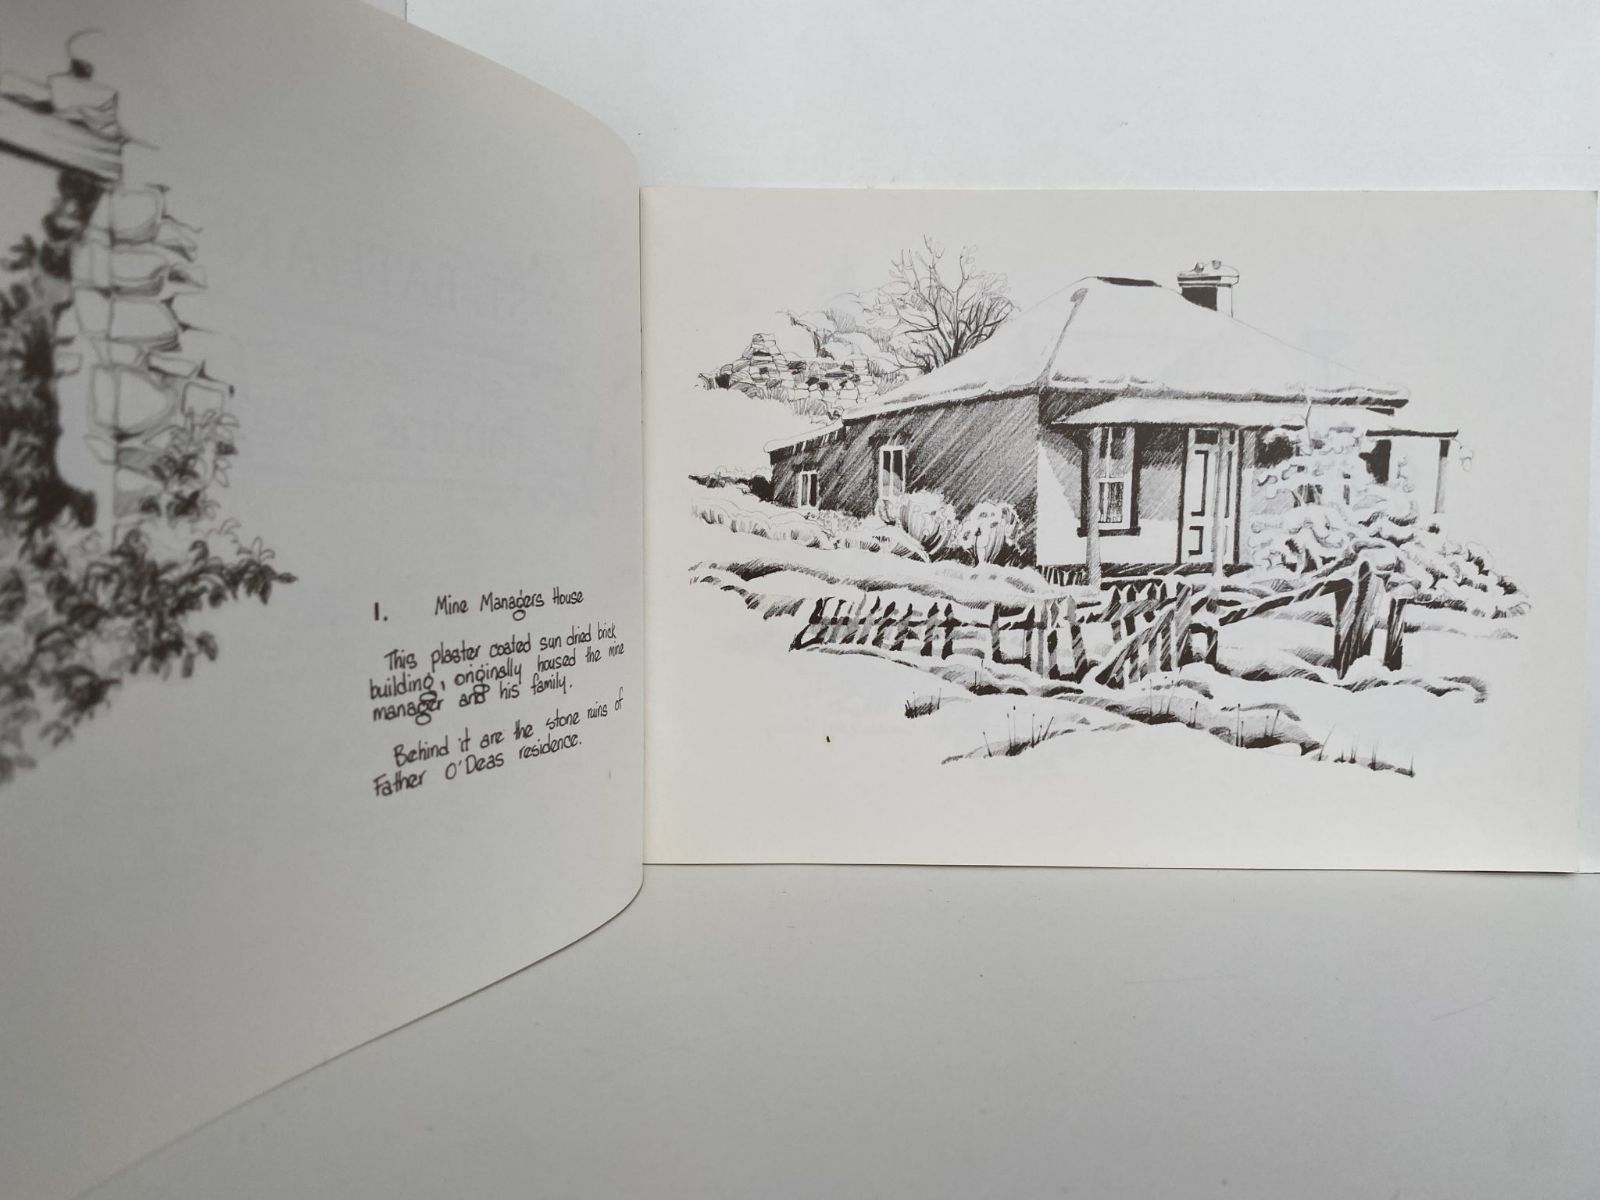 1. Mine Managers House
This plaster coated sun dried brick
building, originally housed the mine
manager and his family.
Behind it are the stone ruins of
Father O'Deas residence.